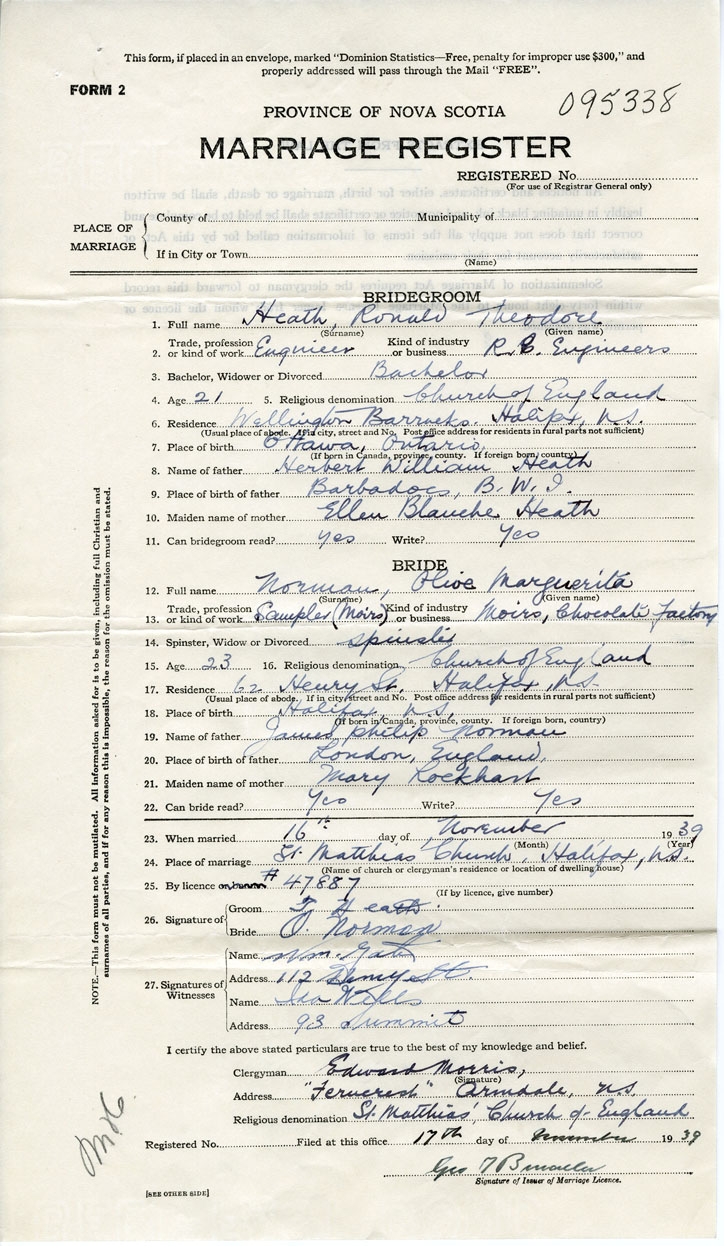 This form, if placed in an envelope, marked "Dominion Statistics—Free, penalty for improper use $300," and
properly addressed will pass through the Mail "FREE".
FORM 2
095338
PROVINCE OF NOVA SCOTIA
MARRIAGE REGISTER
REGISTERED No.
(For use of Registrar General only)
PLACE OF MARRIAGE
County of Municipality of
If in City or Town
(Name)
BRIDEGROOM
1. Full name Heath, Ronald Theodore
(Surname) (Given name)
2. Trade, profession or kind of work Engineer Kind of industry or business R.C. Engineers
3. Bachelor, Widower or Divorced Bachelor
4. Age 21 5. Religious denomination Church of England
6. Residence Wellington Barracks. Halifax, N.S.
(Usual place of abode. If in city, street and No. Post office address for residents in rural parts not sufficient)
7. Place of birth Ottawa, Ontario
(If born in Canada, province, county. If foreign born, country)
8. Name of father Herbert William Heath
9. Place of birth of father Barbados, B.W.I.
10. Maiden name of mother Ellen Blanche Heath
11. Can bridegroom read? yes Write? Yes
BRIDE
12. Full name Norman, Olive Marguerita
(Surname) (Given name)
13. Trade, profession or kind of work Sampler (Moirs) Kind of industry or business Moirs, Chocolate Factory
14. Spinster, Widow or Divorced
15. Age 23 16. Religious denomination Church of England
17. Residence 62 Henry St. Halifax, N.S.
(Usual place of abode. If in city, street and No. Post office address for residents in rural parts not sufficient)
18. Place of birth Halifax, N.S.
(If born in Canada, province, county. If foreign born, country)
19. Name of father James Philip Norman
20. Place of birth of father London, England,
21. Maiden name of mother Mary Lockhart
22. Can bride read? Yes Write? Yes
23. When married 16th day of November 1939
(Month) (Year)
24. Place of marriage St. Matthias Church, Halifax, N.S.
(Name of church or clergyman's residence or location of dwelling house)
25. By licence # 47887
(If by licence, give number)
26. Signature of
Groom Heath
Bride O. Norman
27. Signatures of Witnesses
Name Wm.
Address 112 Henry St.
Name Ida
Address 93 Summit
I certify the above stated particulars are true to the best of my knowledge and belief.
Clergyman Edward Morris,
(Signature)
Address "Ferncrest" Armdale, N.S.
Religious denomination St. Matthias' Church of England
Registered No. Filed at this office 17th day of November 1939
Geo
Signature of Issuer of Marriage Licence.
[SEE OTHER SIDE]
NOTE.—This form must not be mutilated. All information asked for is to be given, including full Christian and
surnames of all parties, and if for any reason this is impossible, the reason for the omission must be stated.